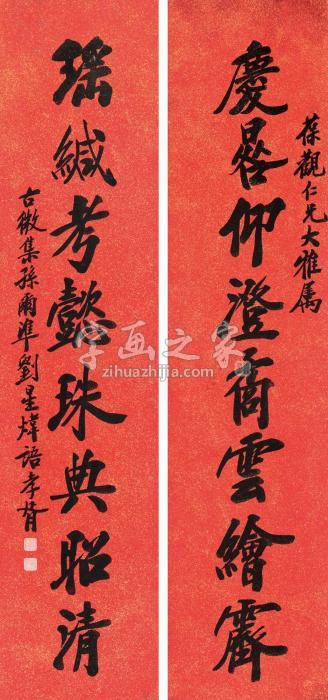 葆觀仁兄大雅屬
慶晷仰澄矞雲繪霽
瑤緘考懿珠典昭清
古微集孫爾準劉星煒語孝胥
字画之家
zihuazhijia.com